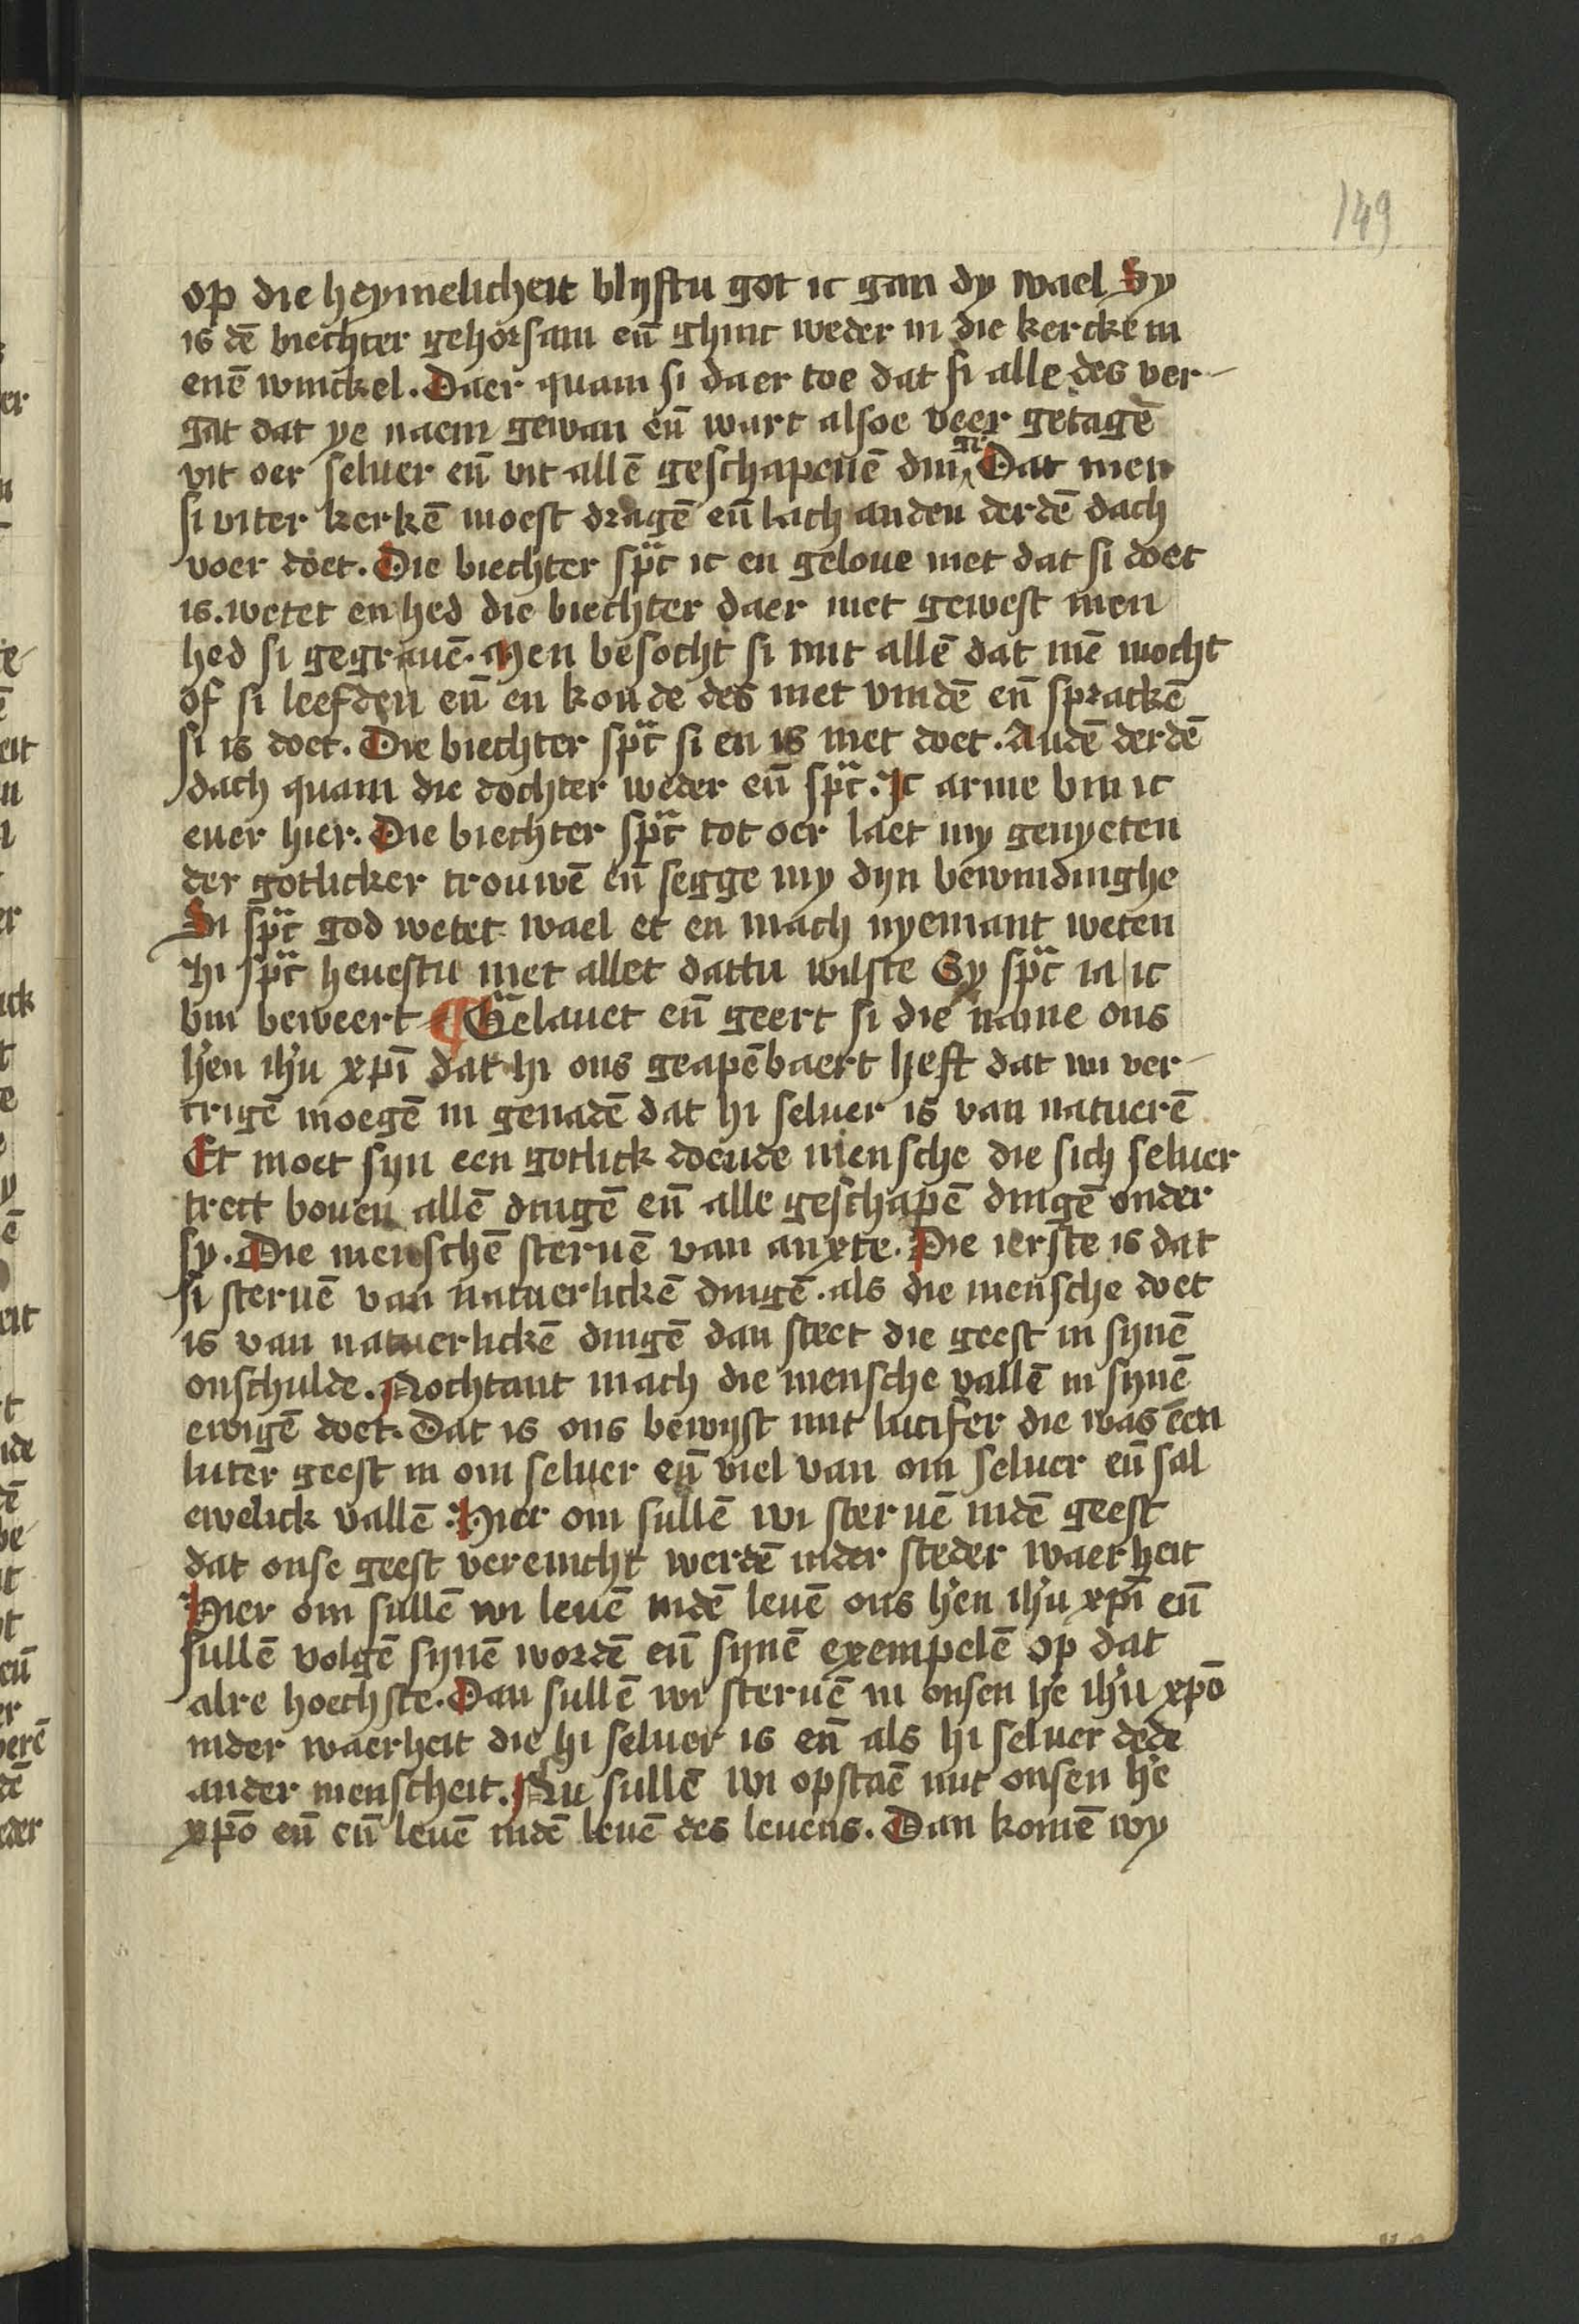 149
op die heymelicheit blyftu got ic gan dy wael Sy
is dē biechter gehorsam eñ ghinc weder in die kercke in
enē winckel. Daer quam si daer toe dat si alle des ver-
gat dat ye naem gewan eñ wart alsoe veer getagē
vit oer seluer eñ vit allē geschapenē din gē Dat men
si viter kerkē moest dragē eñ lach anden derdē dach
voer doet. Die biechter spͣc ic en geloue niet dat si doet
is. wetet en hed die biechter daer niet gewest men
hed si gegrauē. Men besocht si mit allē dat mē mocht
of si leefden eñ en konde des niet vindē eñ sprackē
si is doet. Die biechter spͣc si en is niet doet. Andē derdē
dach quam die dochter weder eñ spͣc. Ic arme bin ic
euer hier. Die biechter spͣc tot oer laet my genyeten
der gotlicker trouwē eñ segge my dyn bewindinghe
Si spͣc god wetet wael et en mach nyemant weten
hi spͣc heuestu niet allet dattu wilste Sy spͣc ia ic
bin beweert ¶ Gelauet eñ geert si die name ons
hēn ihū xpī dat hi ons geapēbaert heft dat wi ver-
crigē moegē in genadē dat hi seluer is van natuerē
Et moet syn een gotlick doende mensche die sich seluer
trect bouen allē dingē eñ alle geschapē dingē onder
sy. Die menschē steruē van anxte. Die ierste is dat
si steruē van natuerlickē dingē. als die mensche doet
is van natuerlickē dingē dan steet die geest in synē
onschulde. Nochtant mach die mensche vallē in synē
ewigē doet. Dat is ons bewyst mit lucifer die was een
luter geest in om seluer eñ viel van om seluer eñ sal
ewelick vallē. Hier om sullē wi steruē indē geest
dat onse geest vereinicht werdē inder steder waerheit
Hier om sullē wi leuē indē leuē ons hēn ihū xpī eñ
sullē volgē synē wordē eñ synē exempelē op dat
alre hoechste. Dan sullē wi steruē in onsen hē ihū xpō
inder waerheit die hi seluer is eñ als hi seluer dede
ander menscheit. Nu sullē wi opstaē mit onsen hē
xpō eñ eñ leuē indē leuē des leuens. Dan komē wy